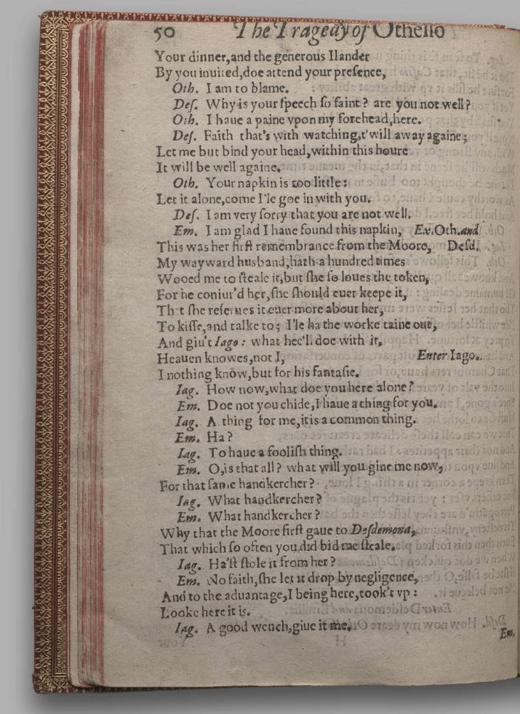 50 The Tragedy of Othello
Your dinner,and the generous Ilander
By you inuited,doe attend your presence,
Oth. I am to blame.
Des. Why is your speech so faint? are you not well?
Oth. I haue a paine vpon my forehead,here.
Des. Faith that's with watching,t'will away againe;
Let me but bind your head,within this houre
It will be well againe.
Oth. Your napkin is too little:
Let it alone,come I'le goe in with you.
Des. I am very sorry that you are not well.
Em. I am glad I haue found this napkin, Ex.Oth.and
This was her first remembrance from the Moore, Desd.
My wayward husband,hath a hundred times
Wooed me to steale it,but she so loues the token,
For he coniur'd her,she should euer keepe it,
That she reserues it euer more about her,
To kisse,and talke to; I'le ha the worke taine out,
And giu't Iago: what hee'll doe with it,
Heauen knowes,not I, Enter Iago.
I nothing know,but for his fantasie.
Iag. How now,what doe you here alone?
Em. Doe not you chide,I haue a thing for you.
Iag. A thing for me,it is a common thing.
Em. Ha?
Iag. To haue a foolish thing.
Em. O,is that all? what will you giue me now,
For that same handkercher?
Iag. What handkercher?
Em. What handkercher?
Why that the Moore first gaue to Desdemona,
That which so often you did bid me steale.
Iag. Ha'st stole it from her?
Em. No faith,she let it drop by negligence,
And to the aduantage,I being here,took't vp:
Looke here it is.
Iag. A good wench,giue it me.
Em.